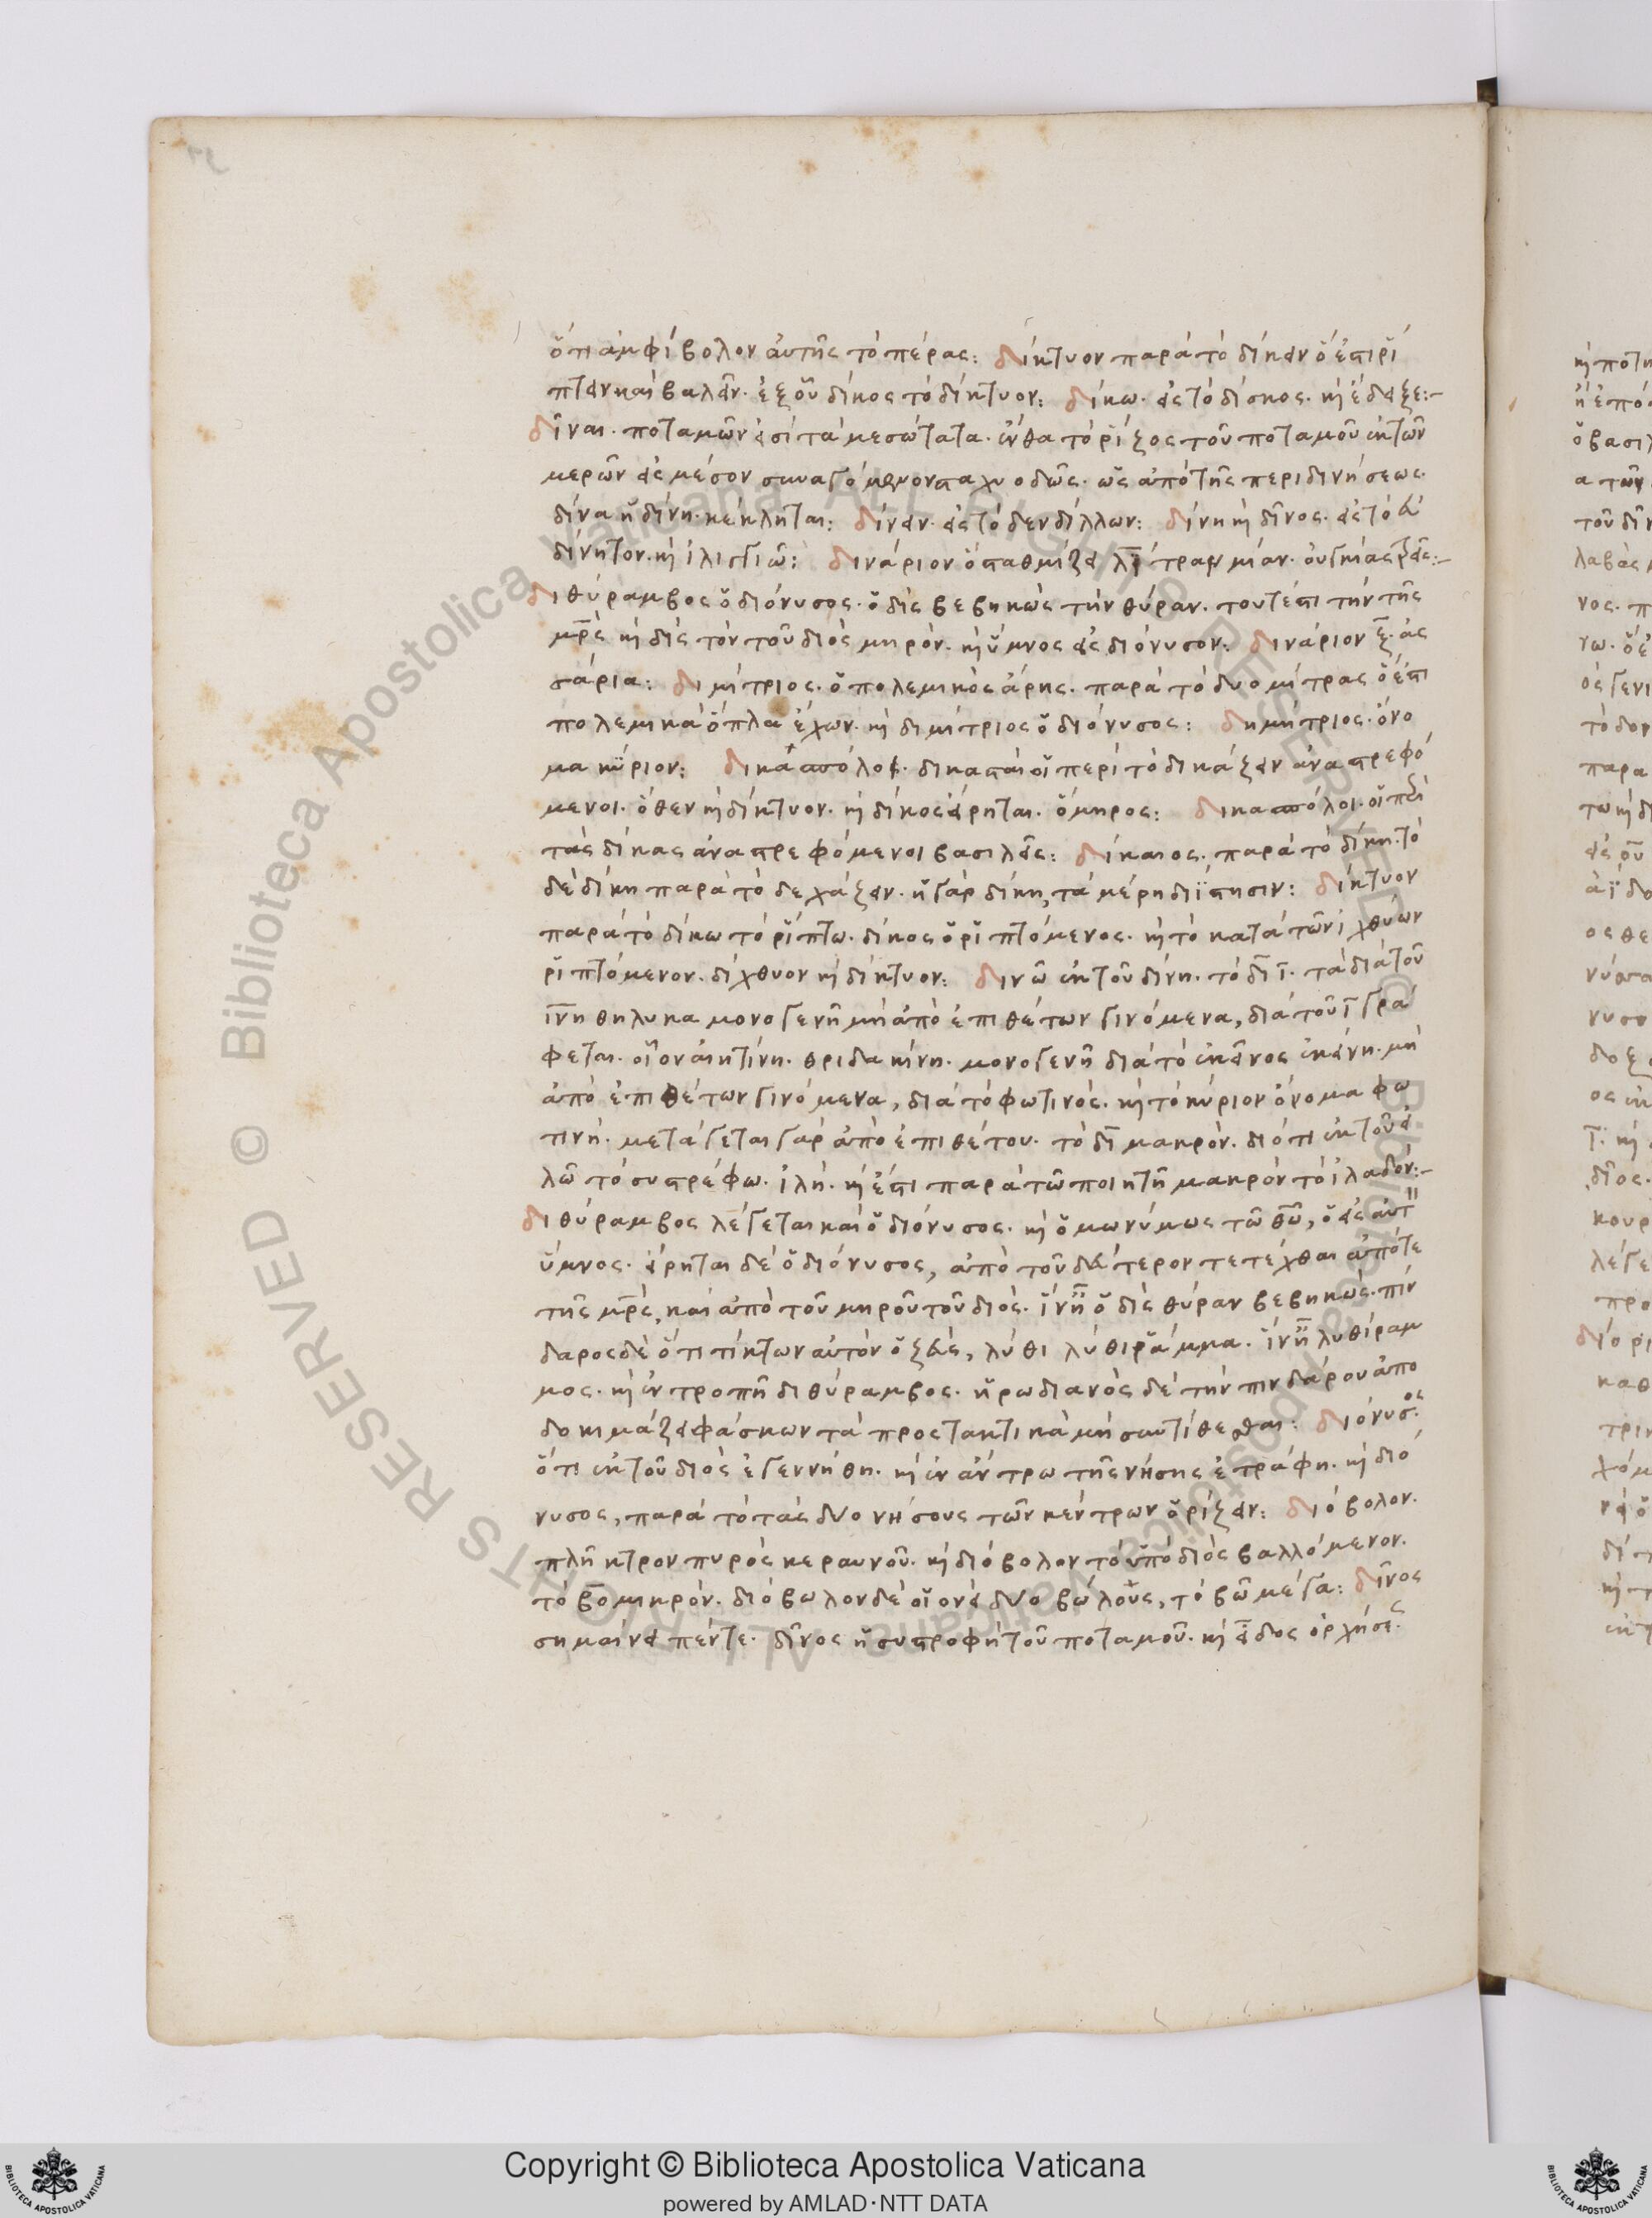 ὅτι ἀμφίβολον αὐτῆς τὸ πέρας: δίκτυον παρὰ τὸ δίκειν ὅ ἐστι ῥί
πτειν καὶ βαλεῖν. ἐξ οὗ δίκος τὸ δίκτυον: δίκω. εἰς τὸ δίσκος. καὶ ἔδειξε:-
δῖναι. ποταμῶν εἰσὶ τὰ μεσώτατα. ἔνθα τὸ ῥίζος τοῦ ποταμοῦ ἐκ τῶν
μερῶν εἰς μέσον συναγόμενον παχυοδῶς. ὡς ἀπὸ τῆς περιδινήσεως.
δίνα ἢ δίνη. κέκληται: δίνειν. εἰς τὸ δενδίλλων: δίνη καὶ δῖνος. εἰς τὸ εὐ
δίνητον. καὶ ἰλιγγιῶ: δινάριον ὁσταθμίζει λίτραν μίαν. οὐγκίας
διθύραμβος ὁ διόνυσος. ὁ δὶς βεβηκὼς τὴν θύραν. τουτέστι τὴν τῆς
μρ̅ς καὶ δὶς τὸν τοῦ διὸς μηρόν. καὶ ὕμνος εἰς διόνυσον: δινάριον ξ. ἀσ
σάρια: διμίτριος. ὁ πολεμικὸς ἄρης. παρὰ τὸ δυο μίτρας ὅ ἐστι
πολεμικὰ ὅπλα ἔχων. καὶ διμίτριος ὁ διόνυσος: δημήτριος. ὄνο
μα κύριον: δικασπόλοι. δικασταὶ οἱ περὶ τὸ δικάζειν ἀναστρεφό
μενοι. ὅθεν καὶ δίκτυον. καὶ δίκος εἴρηται. ὅμηρος: δικασπόλοι. οἱ περὶ
τὰς δίκας ἀναστρεφόμενοι βασιλεῖς: δίκαιος. παρὰ τὸ δίκη. τὸ
δὲ δίκη παρὰ τὸ δεχάζειν. ἡ γὰρ δίκη, τὰ μέρη διΐστησιν: δίκτυον
παρὰ τὸ δίκω τὸ ῥίπτω. δίκος ὁ ῥιπτόμενος. καὶ τὸ κατὰ τῶν ἰχθύων
ῥιπτόμενον. δίχθυον καὶ δίκτυον: δινῶ ἐκ τοῦ δίνη. τὸ δι ι. τὰ διὰ τοῦ
ινη θηλυκα μονογενῆ μὴ ἀπὸ ἐπιθέτων γινόμενα, διὰ τοῦ ι γρά
φεται. οἷον αἰητίνη. θριδακίνη. μονογενῆ διὰ τὸ ἐκεῖνος ἐκείνη. μὴ
ἀπὸ ἐπιθέτων γινόμενα, διὰ τὸ φωτινός. καὶ τὸ κύριον ὄνομα φω
τινή. μετάγεται γὰρ ἀπὸ ἐπιθέτου. τὸ δι μακρόν. διότι ἐκ τοῦ εἰ
λῶ τὸ συστρέφω. ἰλή. καὶ ἔστι παρὰ τῶ ποιητῆ μακρὸν τὸ ἰλαδόν:-
διθύραμβος λέγεται καὶ ὁ διόνυσος. καὶ ὁμωνύμως τῶ θῶ, ὁ εἰς αὐτ
ὕμνος. εἴρηται δὲ ὁ διόνυσος, ἀπὸ τοῦ δεύτερον τετέχθαι ἀπό τε
τῆς μρ̅ς, καὶ ἀπὸ τοῦ μηροῦ τοῦ διός. ἵν ᾖ ὁ δὶς θύραν βεβηκώς. πίν
δαρος δὲ ὅτι τίκτων αὐτὸν ὁ ζεὺς, λύθι λύθι ῥάμμα. ἵν ᾖ λυθίραμ
μος. καὶ ἐν τροπῆ διθύραμβος. ἡρωδιανὸς δὲ τὴν πινδάρου ἀπο
δοκιμάζει φάσκων τὰ προστακτικὰ μὴ συντίθεσθαι: διόνυσος
ὅτι ἐκ τοῦ διὸς ἐγεννήθη. καὶ ἐν ἄντρω τῆς νήσης ἐτράφη. καὶ διό
νυσος, παρὰ τὸ τὰς δύο νήσους τῶν κέντρων ὁρίζειν: διόβολον.
πλῆκτρον πυρὸς κεραυνοῦ. καὶ διόβολον τὸ ὑπὸ διὸς βαλλόμενον.
τὸ βο μικρόν. διόβωλον δὲ οἱονεὶ δύο βώλους, τὸ βω μέγα: δῖνος
σημαίνει πέντε. δῖνος ἡ συστροφὴ τοῦ ποταμοῦ. καὶ εἶδος ὀρχήσεως.
Copyright © Biblioteca Apostolica Vaticana
powered by AMLAD·NTT DATA